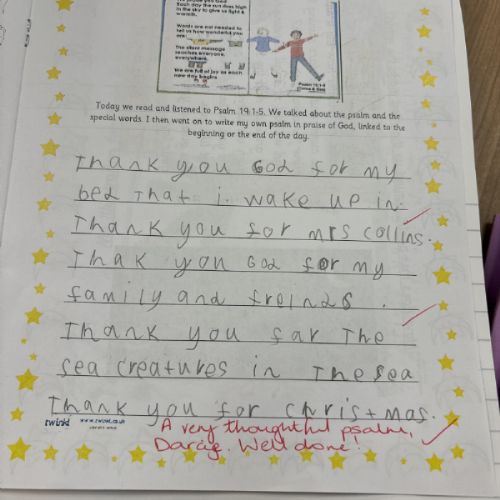 Each day the sun does high
in the sky to give us light &
warmth.
Words are not needed to
tell us how wonderful you
are.
The silent message
reaches everyone,
everywhere.
We are full of joy as each
new day begins
Psalm 19:1-5
Today we read and listened to Psalm 19:1-5. We talked about the psalm and the
special words. I then went on to write my own psalm in praise of God, linked to the
beginning or the end of the day.
Thank you God for my
bed That i wake up in.
Thank you for mrs collins.
Thak you God for my
family and freinds.
Thank you far The
sea creatures in The sea
Thank you for christmas.
twinkl www.twinkl.co.uk
A very thoughtful psalm,
Darcie. Well done!